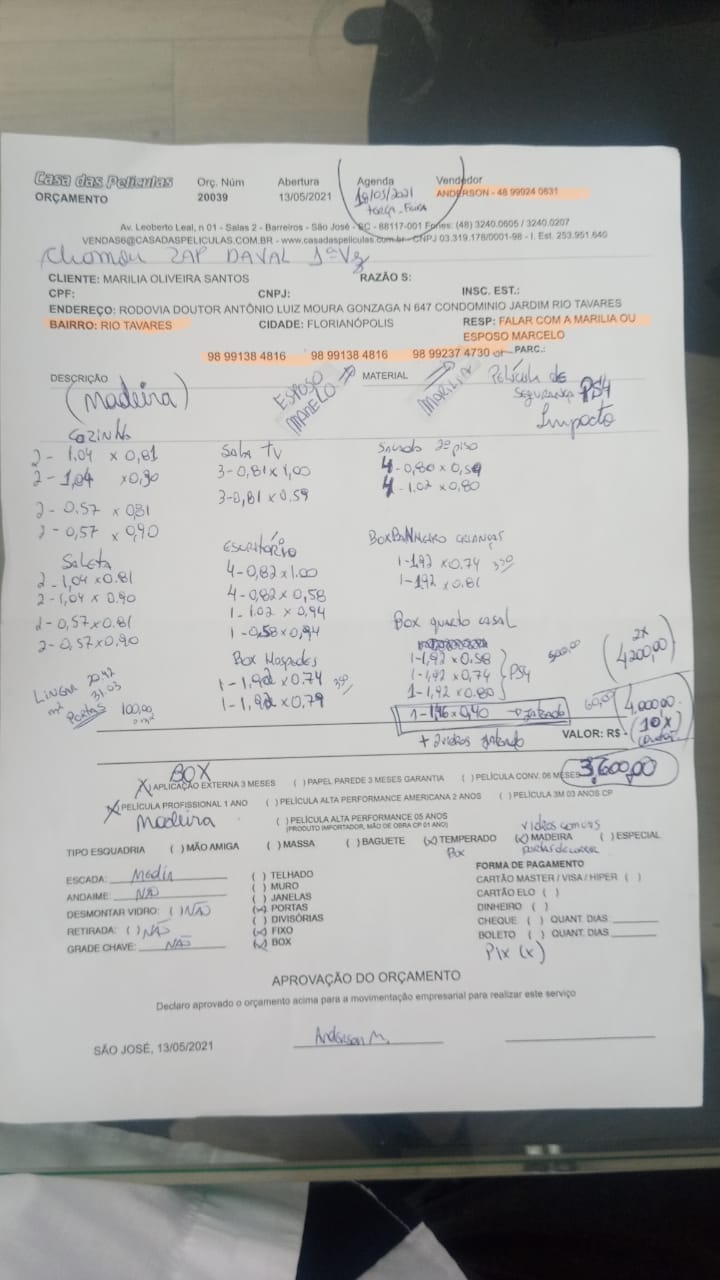 Casa das Películas
ORÇAMENTO
Orç. Núm
20039
Abertura
13/05/2021
Agenda
18/05/2021
terça-Feira
Vendedor
ANDERSON - 48 99924 0631
Av. Leoberto Leal, n 01 - Salas 2 - Barreiros - São José - SC - 88117-001 Fones: (48) 3240.0605 / 3240.0207
VENDAS6@CASADASPELICULAS.COM.BR - www.casadaspeliculas.com.br - CNPJ 03.319.178/0001-98 - I. Est. 253.951.640
Chamou ZAP DAVAL 1ª Vz
CLIENTE: MARILIA OLIVEIRA SANTOS RAZÃO S:
CPF: CNPJ: INSC. EST.:
ENDEREÇO: RODOVIA DOUTOR ANTÔNIO LUIZ MOURA GONZAGA N 647 CONDOMINIO JARDIM RIO TAVARES
BAIRRO: RIO TAVARES CIDADE: FLORIANÓPOLIS RESP: FALAR COM A MARILIA OU
ESPOSO MARCELO
98 99138 4816 98 99138 4816 98 99237 4730 PARC.:
DESCRIÇÃO
(Madeira)
ESPOSO
MATERIAL
MARILIA
Película de
SEGURANÇA PS4
Impacto
COZINHA
2 - 1,04 x 0,81
2 - 1,04 x 0,90
2 - 0,57 x 0,81
2 - 0,57 x 0,90
Sala TV
3 - 0,81 x 1,00
3 - 0,81 x 0,59
2º piso
4 - 0,80 x 0,59
4 - 1,02 x 0,80
Saleta
2 - 1,04 x 0.81
2 - 1,04 x 0.90
2 - 0,57 x 0.81
2 - 0,57 x 0,90
ESCRITÓRIO
4 - 0,82 x 1.00
4 - 0,82 x 0,58
1 - 1.02 x 0,94
1 - 0,58 x 0,94
BOX BANHEIRO CRIANÇAS
1 - 1,92 x 0.74 350
1 - 1,92 x 0.81
Box quarto casal
1 - 1,92 x 0.58
1 - 1,92 x 0,74
1 - 1,92 x 0.80
PS4
500,00
1 - 1,46 x 0,40 → Jateado
60,00
+ 2 vidros Jateado
Box Hospedes
1 - 1,92 x 0.74 350
1 - 1,92 x 0,79
m² 31.03
Portas 100,00
2x
4,200,00
4,000,00
VALOR: R$ -
(10x)
3,600,00
BOX
(X) APLICAÇÃO EXTERNA 3 MESES ( ) PAPEL PAREDE 3 MESES GARANTIA ( ) PELÍCULA CONV. 06 MESES
(X) PELÍCULA PROFISSIONAL 1 ANO ( ) PELÍCULA ALTA PERFORMANCE AMERICANA 2 ANOS ( ) PELÍCULA 3M 03 ANOS CP
Madeira
( ) PELÍCULA ALTA PERFORMANCE 05 ANOS
(PRODUTO IMPORTADOR, MÃO DE OBRA CP 01 ANO)
vidros comuns
TIPO ESQUADRIA ( ) MÃO AMIGA ( ) MASSA ( ) BAGUETE (x) TEMPERADO (x) MADEIRA ( ) ESPECIAL
Box
portas de correr
ESCADA: Media
ANDAIME: NÃO
DESMONTAR VIDRO: ( ) NÃO
RETIRADA: ( ) NÃO
GRADE CHAVE: NÃO
( ) TELHADO
( ) MURO
( ) JANELAS
(x) PORTAS
( ) DIVISÓRIAS
(x) FIXO
(x) BOX
FORMA DE PAGAMENTO
CARTÃO MASTER / VISA / HIPER ( )
CARTÃO ELO ( )
DINHEIRO ( )
CHEQUE ( ) QUANT. DIAS
BOLETO ( ) QUANT. DIAS
Pix (x)
APROVAÇÃO DO ORÇAMENTO
Declaro aprovado o orçamento acima para a movimentação empresarial para realizar este serviço
SÃO JOSÉ, 13/05/2021
Anderson M.